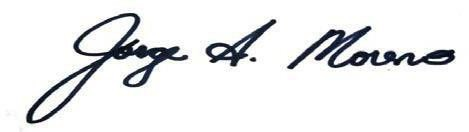 Jorge A. Moreno